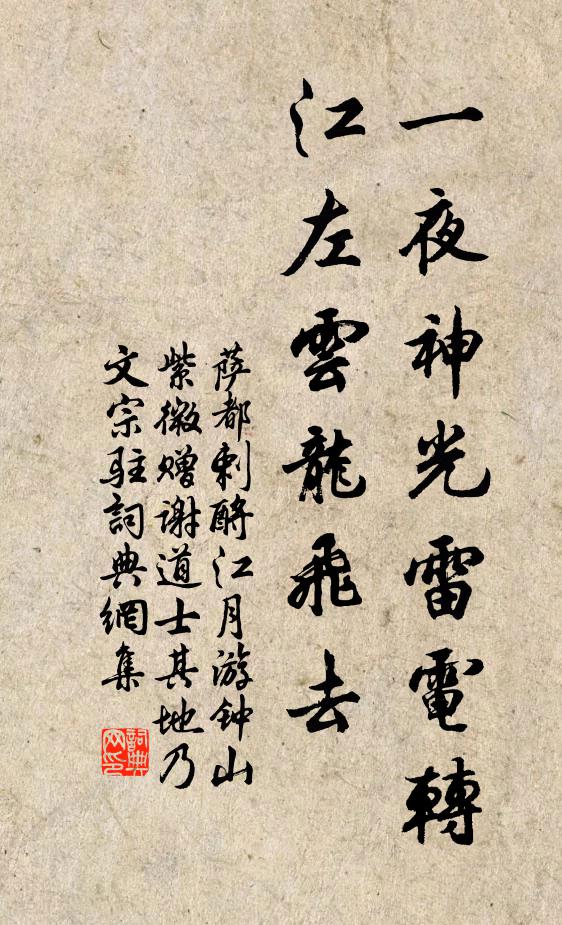 一夜神光雷電轉
江左雲龍飛去
萨都剌酹江月游钟山
紫微赠谢道士其地乃
文宗驻詞典網集
詞典
网印